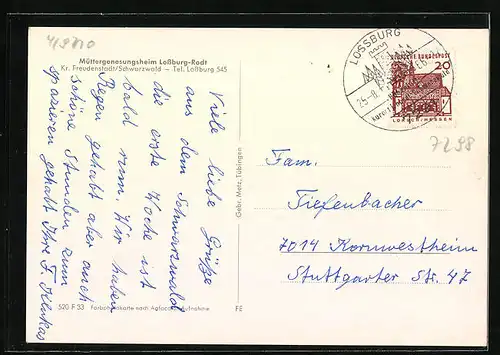 4/9710
Müttergenesungsheim Loßburg-Rodt
Kr. Freudenstadt/Schwarzwald – Tel. Loßburg 545
Viele liebe Grüße
aus dem Schwarzwald
die erste Woche ist
bald rum. Wir haben
Regen gehabt aber auch
schöne Stunden zum
spazieren gehabt Ihre F.
520 F 33 Farbpostkarte nach Agfacolor-Aufnahme
FE
Gebr. Metz, Tübingen
LOSSBURG
25.-8.
DEUTSCHE BUNDESPOST
20
LORSCH/HESSEN
7298
Fam.
Tiefenbacher
7014 Kornwestheim
Stuttgarter Str. 47